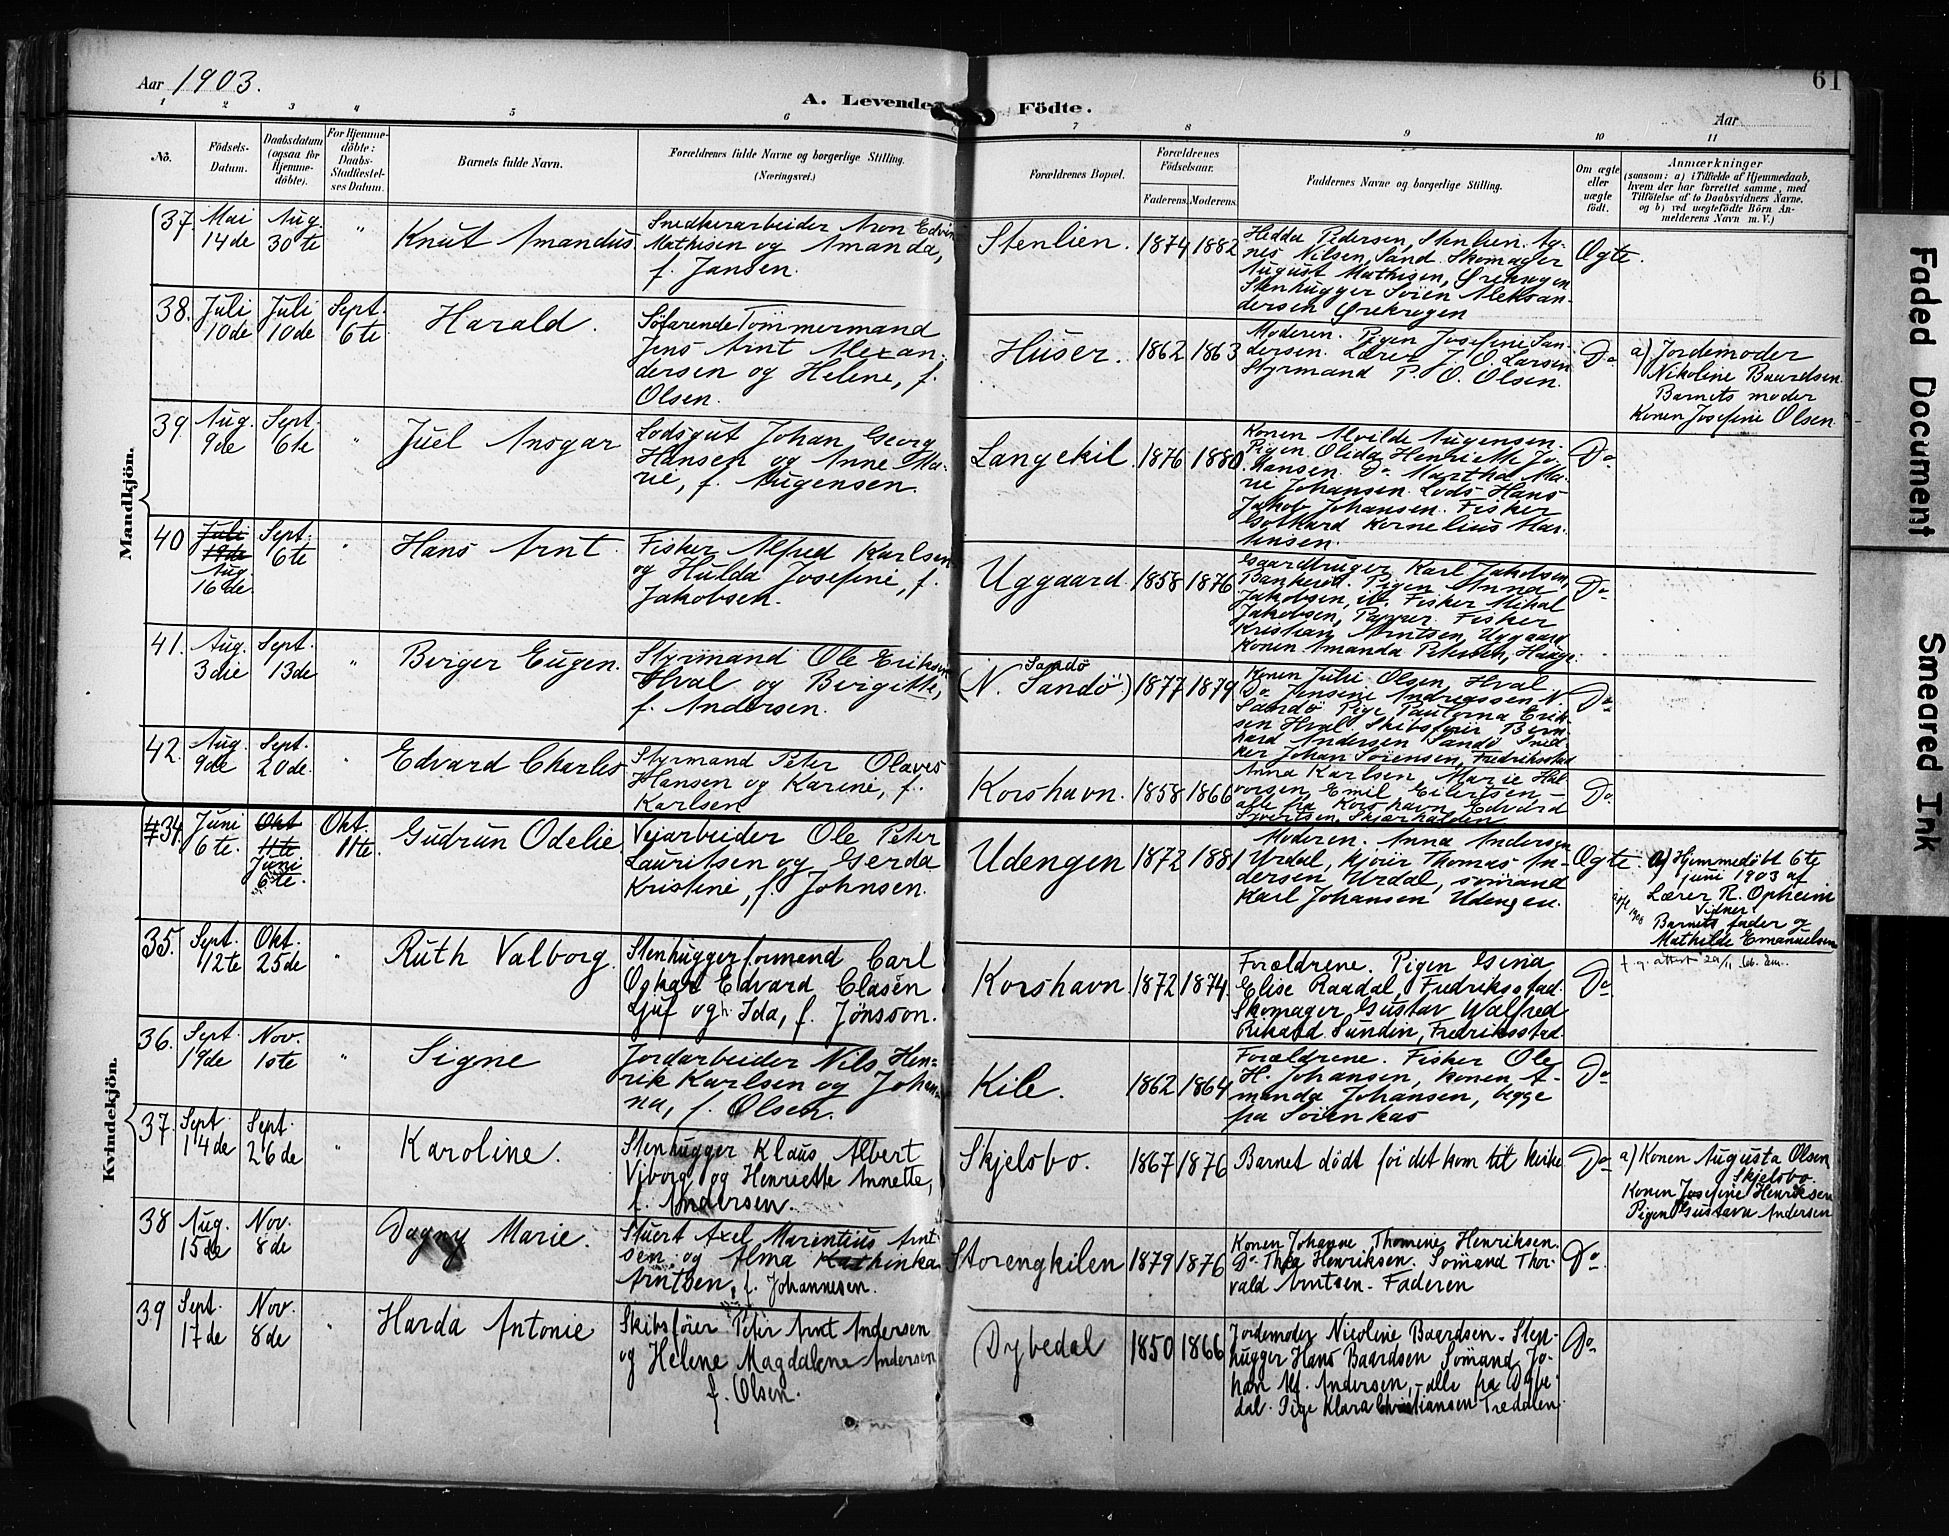 Aar 1903.
A. Levende Födte.
61
Aar
1 2 3 4 5 6 7 8 9 10 11
No.
Födsels-Datum.
Daabsdatum (ogsaa for Hjemme-döbte).
For Hjemme-döbte: Daabs-Stadfæstelses Datum.
Barnets fulde Navn.
Forældrenes fulde Navne og borgerlige Stilling. (Næringsvei.)
Forældrenes Bopæl.
Forældrenes Födselsaar.
Faderens. Moderens.
Faddernes Navne og borgerlige Stilling.
Om ægte eller uægte födt.
Anmærkninger
(saasom: a) i Tilfælde af Hjemmedaab, hvem der har forrettet samme, med Tilföielse af to Daabsvidners Navne, og b) ved uægtefödte Börn Anmelderens Navn m. V.)
Mandkjön.
37. Mai 14de
Aug. 30te
"
Knut Amandus
Snedkerarbeider Aron Edvin
Mathisen og Amanda,
f. Jansen.
Stenlien. 1874 1882
Hedda Pedersen, Stenlien. Ag-
nes Nilsen, Sand. Skomager
August Mathisen, Ørekrogen
Stenhugger Søren Aleksan-
dersen Ørekrogen
Ægte.
38. Juli 10de
Juli 10de
Sept. 6te
Harald.
Söfarende Tömmermand
Jens Arnt Alexan-
dersen og Helene, f.
Olsen.
Huser. 1862 1863
Moderen. Pigen Josefine San-
dersen. Lærer J. O. Larsen
Styrmand P. O. Olsen.
Do
a) Jordemoder
Nikoline Baardsen.
Barnets moder
Konen Josefine Olsen.
39 Aug. 9de
Sept. 6te
"
Juel Ansgar
Lodsgut Johan Georg
Hansen og Anne Ma-
rie, f. Augensen.
Langekil. 1876 1880
Konen Alvilde Augensen.
Pigen Olida Henriette Jo-
hansen. Do Martha Ma-
rie Johansen. Lods Hans
Jakob Johansen. Fisker
Gothard Kornelius Mar-
tinsen.
Do
40 Juli 19de
Aug 16de
Sept. 6te
"
Hans Arnt.
Fisker Alfred Karlsen
og Hulda Josefine, f.
Jakobsen.
Uggaard. 1858 1876
Gaardbruger Karl Jakobsen,
Bankerød. Pigen Anna
Jakobsen, ib. Fisker Mihal
Jakobsen, Papper. Fisker
Kristian Arntsen, Uggaard
Konen Amanda Petersen, Hauge.
Do
41. Aug. 3die
Sept. 13de
"
Birger Eugen.
Styrmand Ole Eriksen
Hval og Birgitte,
f. Andersen.
Sandö
(N. Sandö) 1877 1879
Konen Julie Olsen, Hval.
Do Jensine Andreassen N.
Sandö Pige Paulina Erik-
sen Hval Skibsförer Bern-
hard Andersen Sandö Sned-
ker Johan Sörensen, Fredriksstad
Do
42. Aug. 9de
Sept. 20de.
"
Edvard Charles
Styrmand Peter Olaves
Hansen og Karine, f.
Karlsen
Korshavn. 1858 1866
Anna Karlsen, Marie Hal-
vorsen, Emil Eilertsen, -
alle fra Korshavn, Edvard
Syvertsen, Skjærhalden
Do
Kvindekjön.
#34. Juni 6te.
Okt 11te
Juni 6te.
Okt. 11te.
Gudrun Odelie
Veiarbeider Ole Peter
Lauritsen og Gerda
Kristine, f. Johnsen.
Udengen 1872 1881
Moderen. Anna Andersen
Urdal, Kjøier Thomas An-
dersen Urdal, sömand
Karl Johansen Udengen.
Ægte.
a) Hjemmedöbt 6te
juni 1903 af
Lærer R. Opheim
Vidner
Barnets fader og
Mathilde Emanuelsen
35. Sept. 12te
Okt. 25de
"
Ruth Valborg.
Stenhuggerformand Carl
Oskar Edvard Clasén
Ljuf og Ida, f. Jönsson.
Korshavn 1872 1874.
Forældrene. Pigen Gina
Elise Raadal, Fredriksstad.
Skomager Gustav Walfred
Rikard Sundin, Fredriksstad
Do
36. Sept. 19de
Nov. 1ste
"
Signe
Jordarbeider Nils Hen-
rik Karlsen og Johan-
na, f. Olsen.
Kile. 1862 1864
Forældrene. Fisker Ole
H. Johansen, konen A-
manda Johansen, begge
fra Søienkas
Do
37. Sept. 14de
Sept. 26de
"
Karoline.
Stenhugger Klaus Albert
Viborg og Henriette Annette,
f. Andersen.
Skjelsbo. 1867 1876
Barnet dödt för det kom til kirke
Do
a) Konen Augusta Olsen
Skjelsbo.
Konen Josefine Henriksen
Pigen Gustava Andersen
38 Aug. 15de
Nov. 8de
Dagny Marie.
Stuert Axel Marentius Arnt-
sen og Alma Kathinka
Arntsen, f. Johannesen.
Storengkilen 1879 1876
Konen Johanne Thomine Henriksen.
Do Thea Henriksen. Sömand Thor-
vald Arntsen. Faderen
Do
39 Sept. 17de
Nov. 8de
"
Harda Antonie
Skibsförer Peter Arnt Andersen
og Helene Magdalene Andersen
f. Olsen.
Dybedal 1850 1866
Jordemoder Nicoline Baardsen. Sten-
hugger Hans Baardsen Sömand Jo-
han Alf. Andersen, - alle fra Dybe-
dal. Pige Klara Christiansen Tredalen.
Do
Faded Document
Smeared Ink